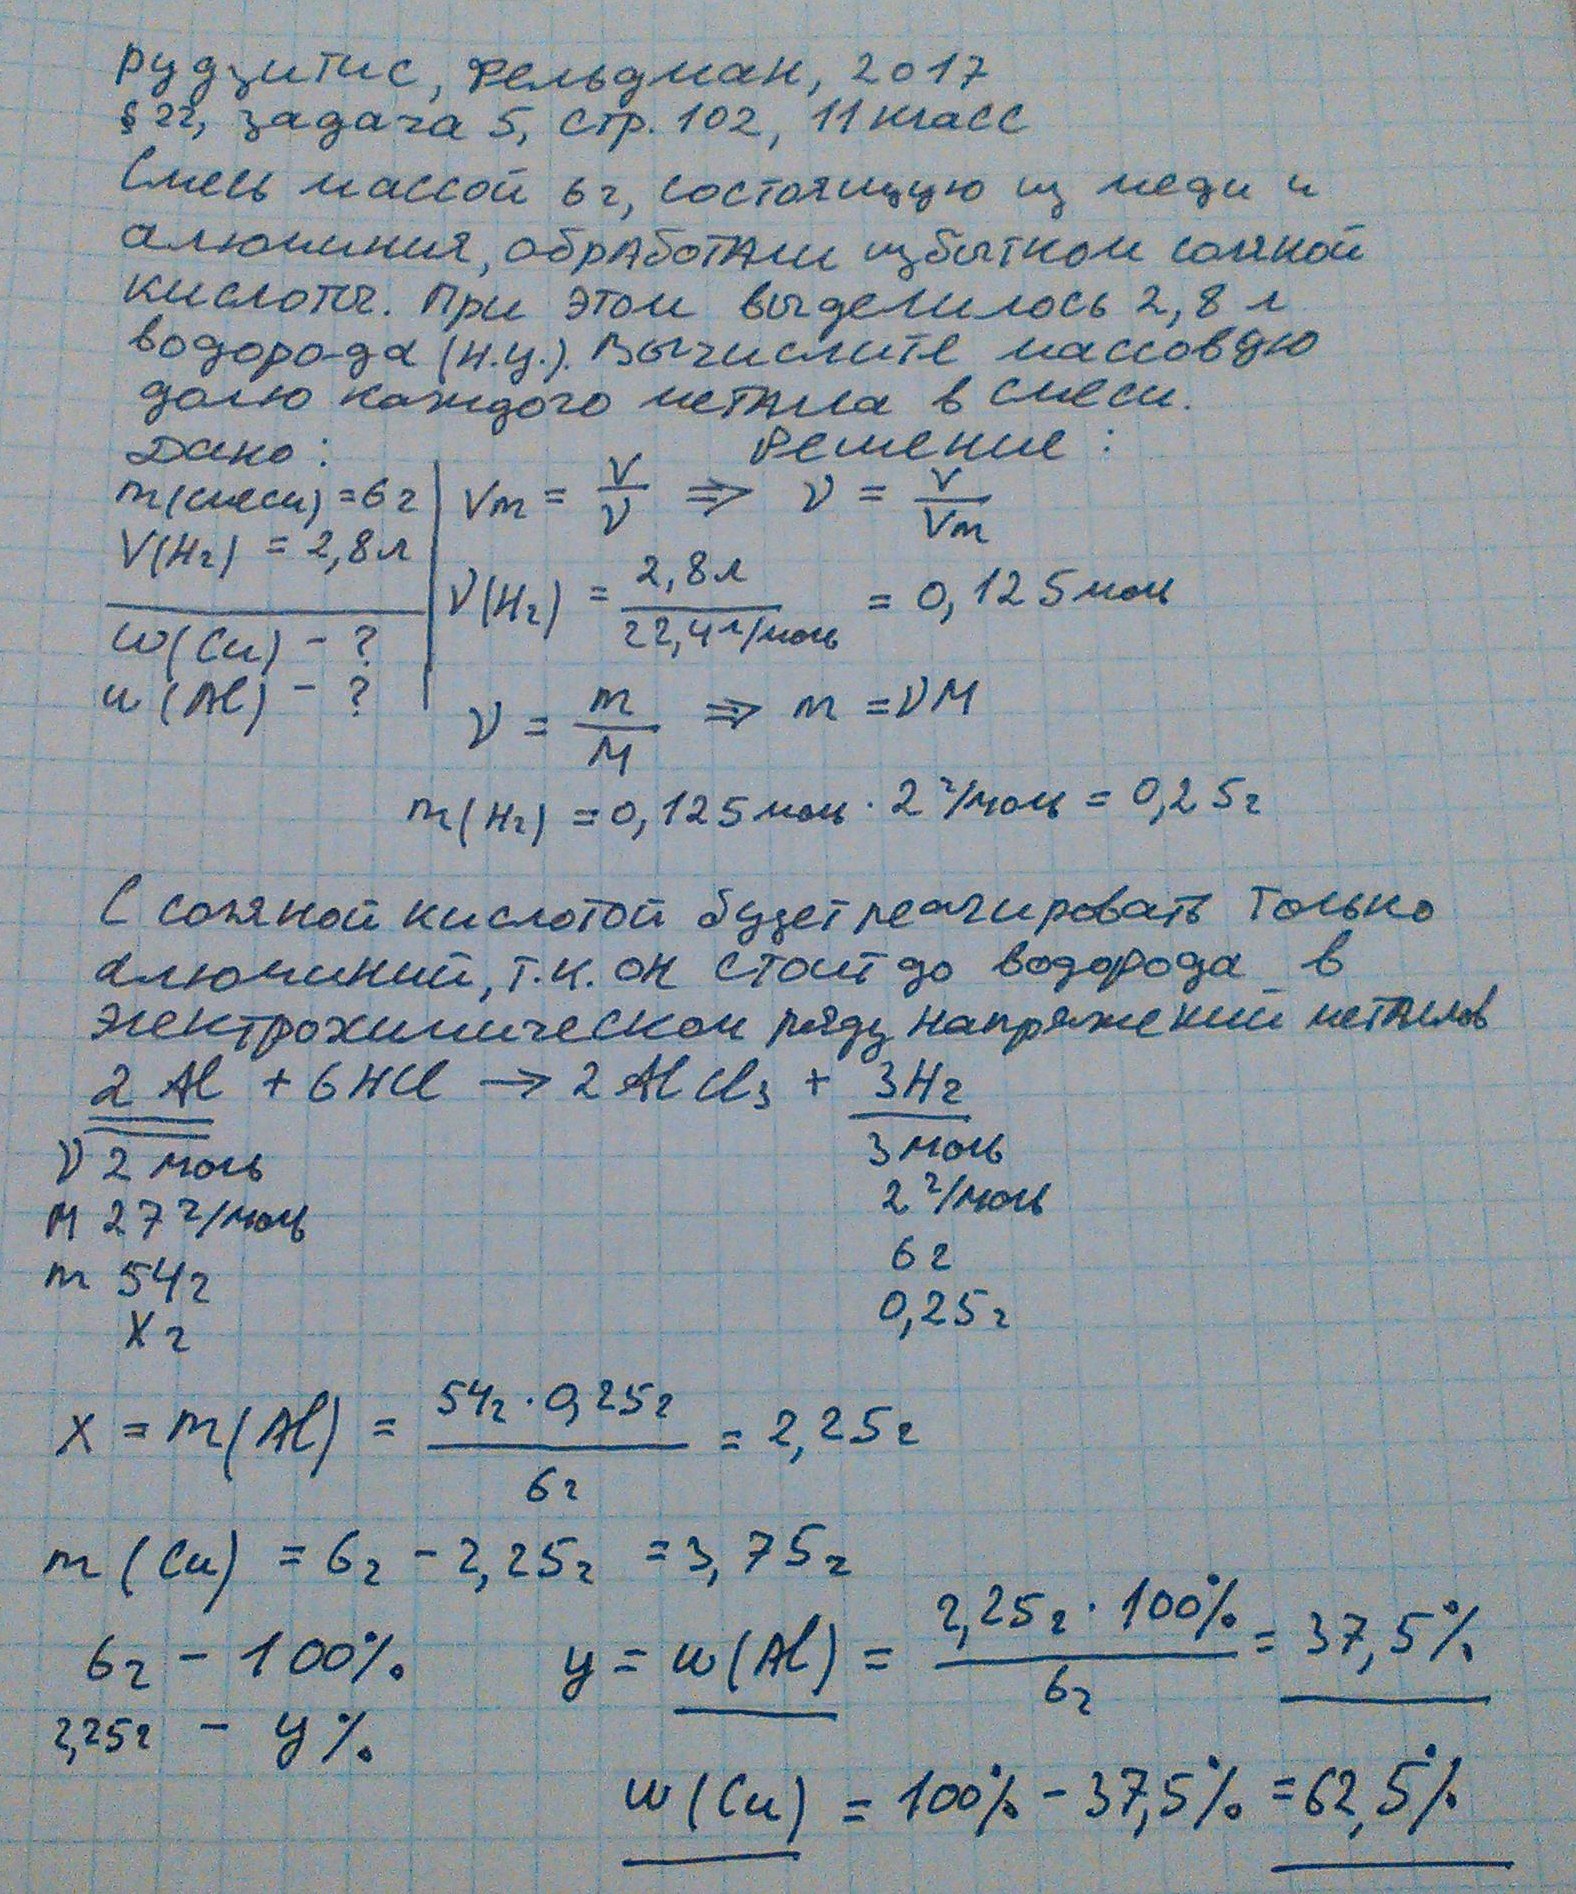 Рудзитис, Фельдман, 2017
§ 22, задача 5, стр. 102, 11 класс
Смесь массой 6 г, состоящую из меди и
алюминия, обработали избытком соляной
кислоты. При этом выделилось 2,8 л
водорода (н.у.). Вычислите массовую
долю каждого металла в смеси.
Дано: Решение:
m(смеси) = 6 г Vm = V/ν ⇒ ν = V/Vm
V(H₂) = 2,8 л
ν(H₂) = 2,8 л / 22,4 л/моль = 0,125 моль
w(Cu) - ?
w(Al) - ?
ν = m/M ⇒ m = νM
m(H₂) = 0,125 моль · 2 г/моль = 0,25 г
С соляной кислотой будет реагировать только
алюминий, т.к. он стоит до водорода в
электрохимическом ряду напряжений металлов
2 Al + 6HCl → 2 AlCl₃ + 3H₂
ν 2 моль 3 моль
M 27 г/моль 2 г/моль
m 54 г 6 г
X г 0,25 г
X = m(Al) = 54 г · 0,25 г / 6 г = 2,25 г
m(Cu) = 6 г - 2,25 г = 3,75 г
6 г - 100% y = w(Al) = 2,25 г · 100% / 6 г = 37,5%
2,25 г - y%
w(Cu) = 100% - 37,5% = 62,5%